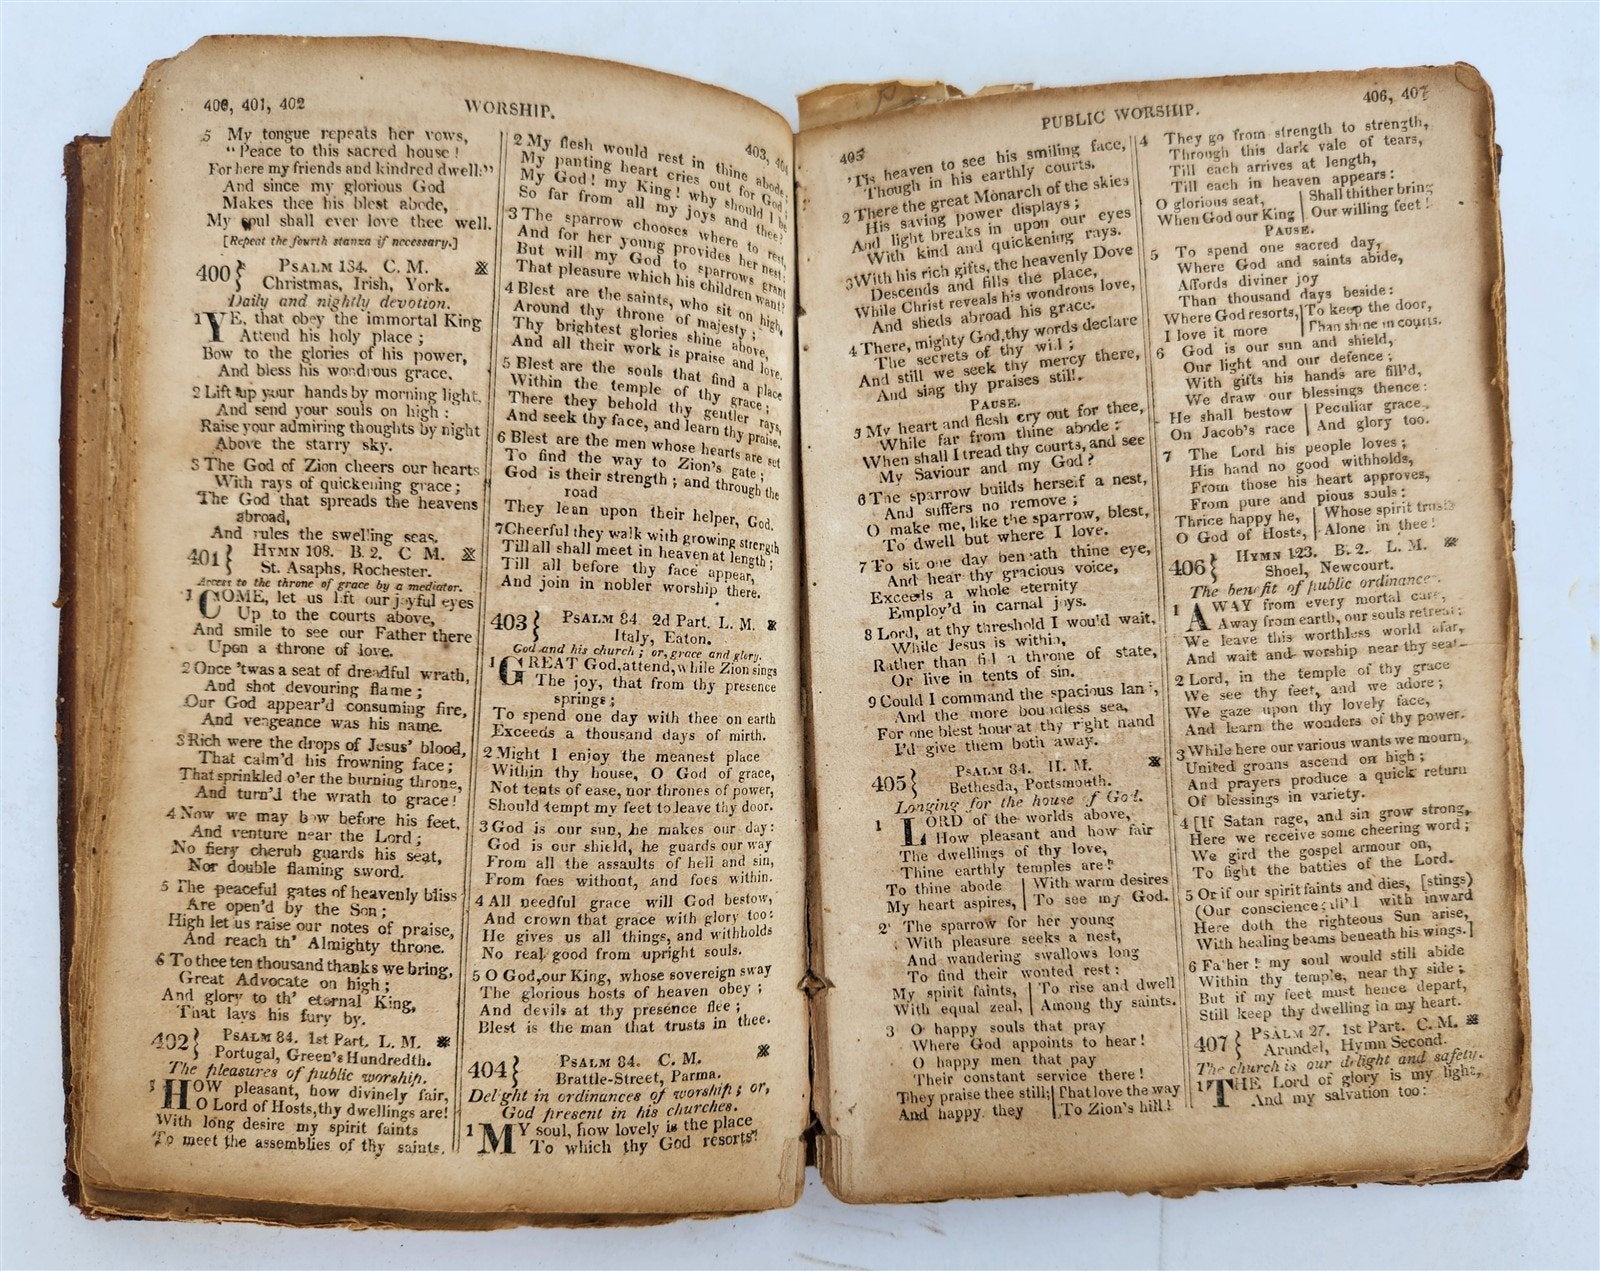 400, 401, 402
WORSHIP.
403, 404
5 My tongue repeats her vows,
"Peace to this sacred house!
For here my friends and kindred dwell:"
And since my glorious God
Makes thee his blest abode,
My soul shall ever love thee well.
[Repeat the fourth stanza if necessary.]
400} PSALM 134. C. M.
Christmas, Irish, York.
Daily and nightly devotion.
1 YE, that obey the immortal King
Attend his holy place;
Bow to the glories of his power,
And bless his wondrous grace.
2 Lift up your hands by morning light,
And send your souls on high:
Raise your admiring thoughts by night
Above the starry sky.
3 The God of Zion cheers our hearts
With rays of quickening grace;
The God that spreads the heavens
abroad,
And rules the swelling seas.
401} HYMN 108. B. 2. C M.
St. Asaphs, Rochester.
Access to the throne of grace by a mediator.
1 COME, let us lift our joyful eyes
Up to the courts above,
And smile to see our Father there
Upon a throne of love.
2 Once 'twas a seat of dreadful wrath,
And shot devouring flame;
Our God appear'd consuming fire,
And vengeance was his name.
3 Rich were the drops of Jesus' blood,
That calm'd his frowning face;
That sprinkled o'er the burning throne,
And turn'd the wrath to grace!
4 Now we may bow before his feet,
And venture near the Lord;
No fiery cherub guards his seat,
Nor double flaming sword.
5 The peaceful gates of heavenly bliss
Are open'd by the Son;
High let us raise our notes of praise,
And reach th' Almighty throne.
6 To thee ten thousand thanks we bring,
Great Advocate on high;
And glory to th' eternal King,
That lays his fury by.
402} PSALM 84. 1st Part. L. M.
Portugal, Green's Hundredth.
The pleasures of public worship.
1 HOW pleasant, how divinely fair,
O Lord of Hosts, thy dwellings are!
With long desire my spirit faints
To meet the assemblies of thy saints.
2 My flesh would rest in thine abode,
My panting heart cries out for God;
My God! my King! why should I be
So far from all my joys and thee?
3 The sparrow chooses where to rest,
And for her young provides her nest:
But will my God to sparrows grant
That pleasure which his children want?
4 Blest are the saints, who sit on high,
Around thy throne of majesty;
Thy brightest glories shine above,
And all their work is praise and love.
5 Blest are the souls that find a place
Within the temple of thy grace;
There they behold thy gentler rays,
And seek thy face, and learn thy praise.
6 Blest are the men whose hearts are set
To find the way to Zion's gate;
God is their strength; and through the
road
They lean upon their helper, God.
7 Cheerful they walk with growing strength
Till all shall meet in heaven at length;
Till all before thy face appear,
And join in nobler worship there.
403} PSALM 84. 2d Part. L. M.
Italy, Eaton.
God and his church; or, grace and glory.
1 GREAT God, attend, while Zion sings
The joy, that from thy presence
springs;
To spend one day with thee on earth
Exceeds a thousand days of mirth.
2 Might I enjoy the meanest place
Within thy house, O God of grace,
Not tents of ease, nor thrones of power,
Should tempt my feet to leave thy door.
3 God is our sun, he makes our day:
God is our shield, he guards our way
From all the assaults of hell and sin,
From foes without, and foes within.
4 All needful grace will God bestow,
And crown that grace with glory too:
He gives us all things, and withholds
No real good from upright souls.
5 O God, our King, whose sovereign sway
The glorious hosts of heaven obey;
And devils at thy presence flee;
Blest is the man that trusts in thee.
404} PSALM 84. C. M.
Brattle-Street, Parma.
Delight in ordinances of worship; or,
God present in his churches.
1 MY soul, how lovely is the place
To which thy God resorts!
405
PUBLIC WORSHIP.
406, 407
'Tis heaven to see his smiling face,
Though in his earthly courts.
2 There the great Monarch of the skies
His saving power displays;
And light breaks in upon our eyes
With kind and quickening rays.
3 With his rich gifts, the heavenly Dove
Descends and fills the place,
While Christ reveals his wondrous love,
And sheds abroad his grace.
4 There, mighty God, thy words declare
The secrets of thy will;
And still we seek thy mercy there,
And sing thy praises still.
PAUSE.
5 My heart and flesh cry out for thee,
While far from thine abode:
When shall I tread thy courts, and see
My Saviour and my God?
6 The sparrow builds herself a nest,
And suffers no remove;
O make me, like the sparrow, blest,
To dwell but where I love.
7 To sit one day beneath thine eye,
And hear thy gracious voice,
Exceeds a whole eternity
Employ'd in carnal joys.
8 Lord, at thy threshold I wou'd wait,
While Jesus is within,
Rather than fill a throne of state,
Or live in tents of sin.
9 Could I command the spacious land,
And the more boundless sea,
For one blest hour at thy right hand
I'd give them both away.
405} PSALM 84. H. M.
Bethesda, Portsmouth.
Longing for the house of God.
1 LORD of the worlds above,
How pleasant and how fair
The dwellings of thy love,
Thine earthly temples are!
To thine abode | With warm desires
My heart aspires, | To see my God.
2 The sparrow for her young
With pleasure seeks a nest,
And wandering swallows long
To find their wonted rest:
My spirit faints, | To rise and dwell
With equal zeal, | Among thy saints.
3 O happy souls that pray
Where God appoints to hear!
O happy men that pay
Their constant service there!
They praise thee still; | That love the way
And happy they | To Zion's hill!
4 They go from strength to strength,
Through this dark vale of tears,
Till each arrives at length,
Till each in heaven appears:
O glorious seat, | Shall thither bring
When God our King | Our willing feet!
PAUSE.
5 To spend one sacred day,
Where God and saints abide,
Affords diviner joy
Than thousand days beside:
Where God resorts, | To keep the door,
I love it more | Than shine in courts.
6 God is our sun and shield,
Our light and our defence;
With gifts his hands are fill'd,
We draw our blessings thence:
He shall bestow | Peculiar grace
On Jacob's race | And glory too.
7 The Lord his people loves;
His hand no good withholds,
From those his heart approves,
From pure and pious souls:
Thrice happy he, | Whose spirit trusts
O God of Hosts, | Alone in thee!
406} HYMN 123. B. 2. L. M.
Shoel, Newcourt.
The benefit of public ordinances.
1 AWAY from every mortal care,
Away from earth, our souls retreat;
We leave this worthless world afar,
And wait and worship near thy seat
2 Lord, in the temple of thy grace
We see thy feet, and we adore;
We gaze upon thy lovely face,
And learn the wonders of thy power.
3 While here our various wants we mourn,
United groans ascend on high;
And prayers produce a quick return
Of blessings in variety.
4 [If Satan rage, and sin grow strong,
Here we receive some cheering word;
We gird the gospel armour on,
To fight the battles of the Lord.
5 Or if our spirit faints and dies, [stings)
(Our conscience fill'd with inward
Here doth the righteous Sun arise,
With healing beams beneath his wings.]
6 Father! my soul would still abide
Within thy temple, near thy side;
But if my feet must hence depart,
Still keep thy dwelling in my heart.
407} PSALM 27. 1st Part. C. M.
Arundel, Hymn Second.
The church is our delight and safety.
1 THE Lord of glory is my light,
And my salvation too: